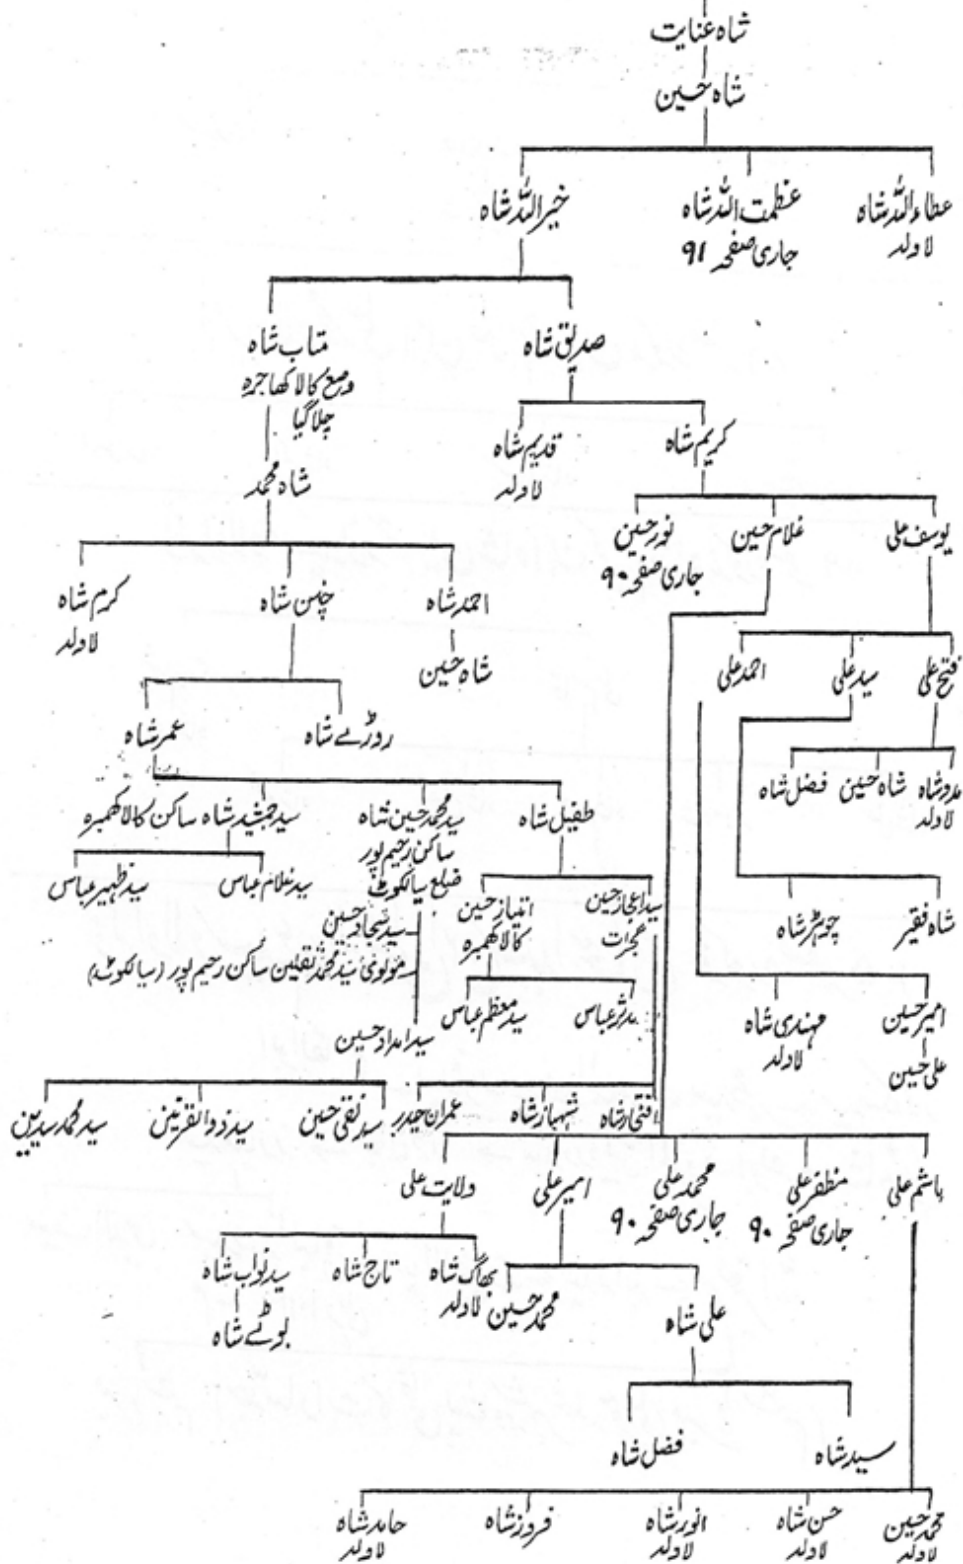 شاہ عنایت
شاہ حسین
عطاء اللہ شاہ
لاولد
عظمت اللہ شاہ
جاری صفحہ ۹۱
خیر اللہ شاہ
صدیق شاہ
متاب شاہ
وضع کالا کھاجرہ
چلا گیا
کریم شاہ
قدیم شاہ
لاولد
شاہ محمد
یوسف علی
غلام حسین
نور حسین
جاری صفحہ ۹۰
احمد شاہ
چنن شاہ
کرم شاہ
لاولد
شاہ حسین
فتح علی
سید علی
احمد علی
روڑے شاہ
عمر شاہ
مدد شاہ
لاولد
شاہ حسین
فضل شاہ
طفیل شاہ
سید محمد حسین شاہ
ساکن رحیم پور
ضلع سیالکوٹ
سید جمشید شاہ ساکن کالا کھمبرہ
سید غلام عباس
سید ظہیر عباس
سید اعجاز حسین
گجرات
امتیاز حسین
کالا کھمبرہ
شاہ فقیر
چوہڑ شاہ
سید سجاد حسین
مولوی سید محمد ثقلین ساکن رحیم پور (سیالکوٹ)
مدثر عباس
سید معظم عباس
امیر حسین
علی حسین
مہندی شاہ
لاولد
سید امداد حسین
افتخار شاہ
شہباز شاہ
عمران حیدر
سید نقی حسین
سید ذوالقرنین
سید محمد سبطین
ہاشم علی
مظفر علی
جاری صفحہ ۹۰
محمد علی
جاری صفحہ ۹۰
امیر علی
ولایت علی
بھاگ شاہ
لاولد
تاج شاہ
سید نواب شاہ
بوٹے شاہ
علی شاہ
محمد حسین
سید شاہ
فضل شاہ
محمد حسین
لاولد
حسن شاہ
لاولد
انور شاہ
لاولد
فروز شاہ
حامد شاہ
لاولد